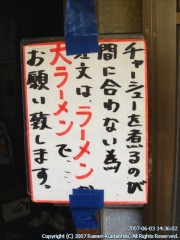 チャーシューを煮るのが
間に合わない為
注文は、ラーメンか
大ラーメンで、
お願い致します。
2007-06-03 14:36:02
Copyright (C) 2007 Ramen-Kuidaoreki, All Rights Reserved.